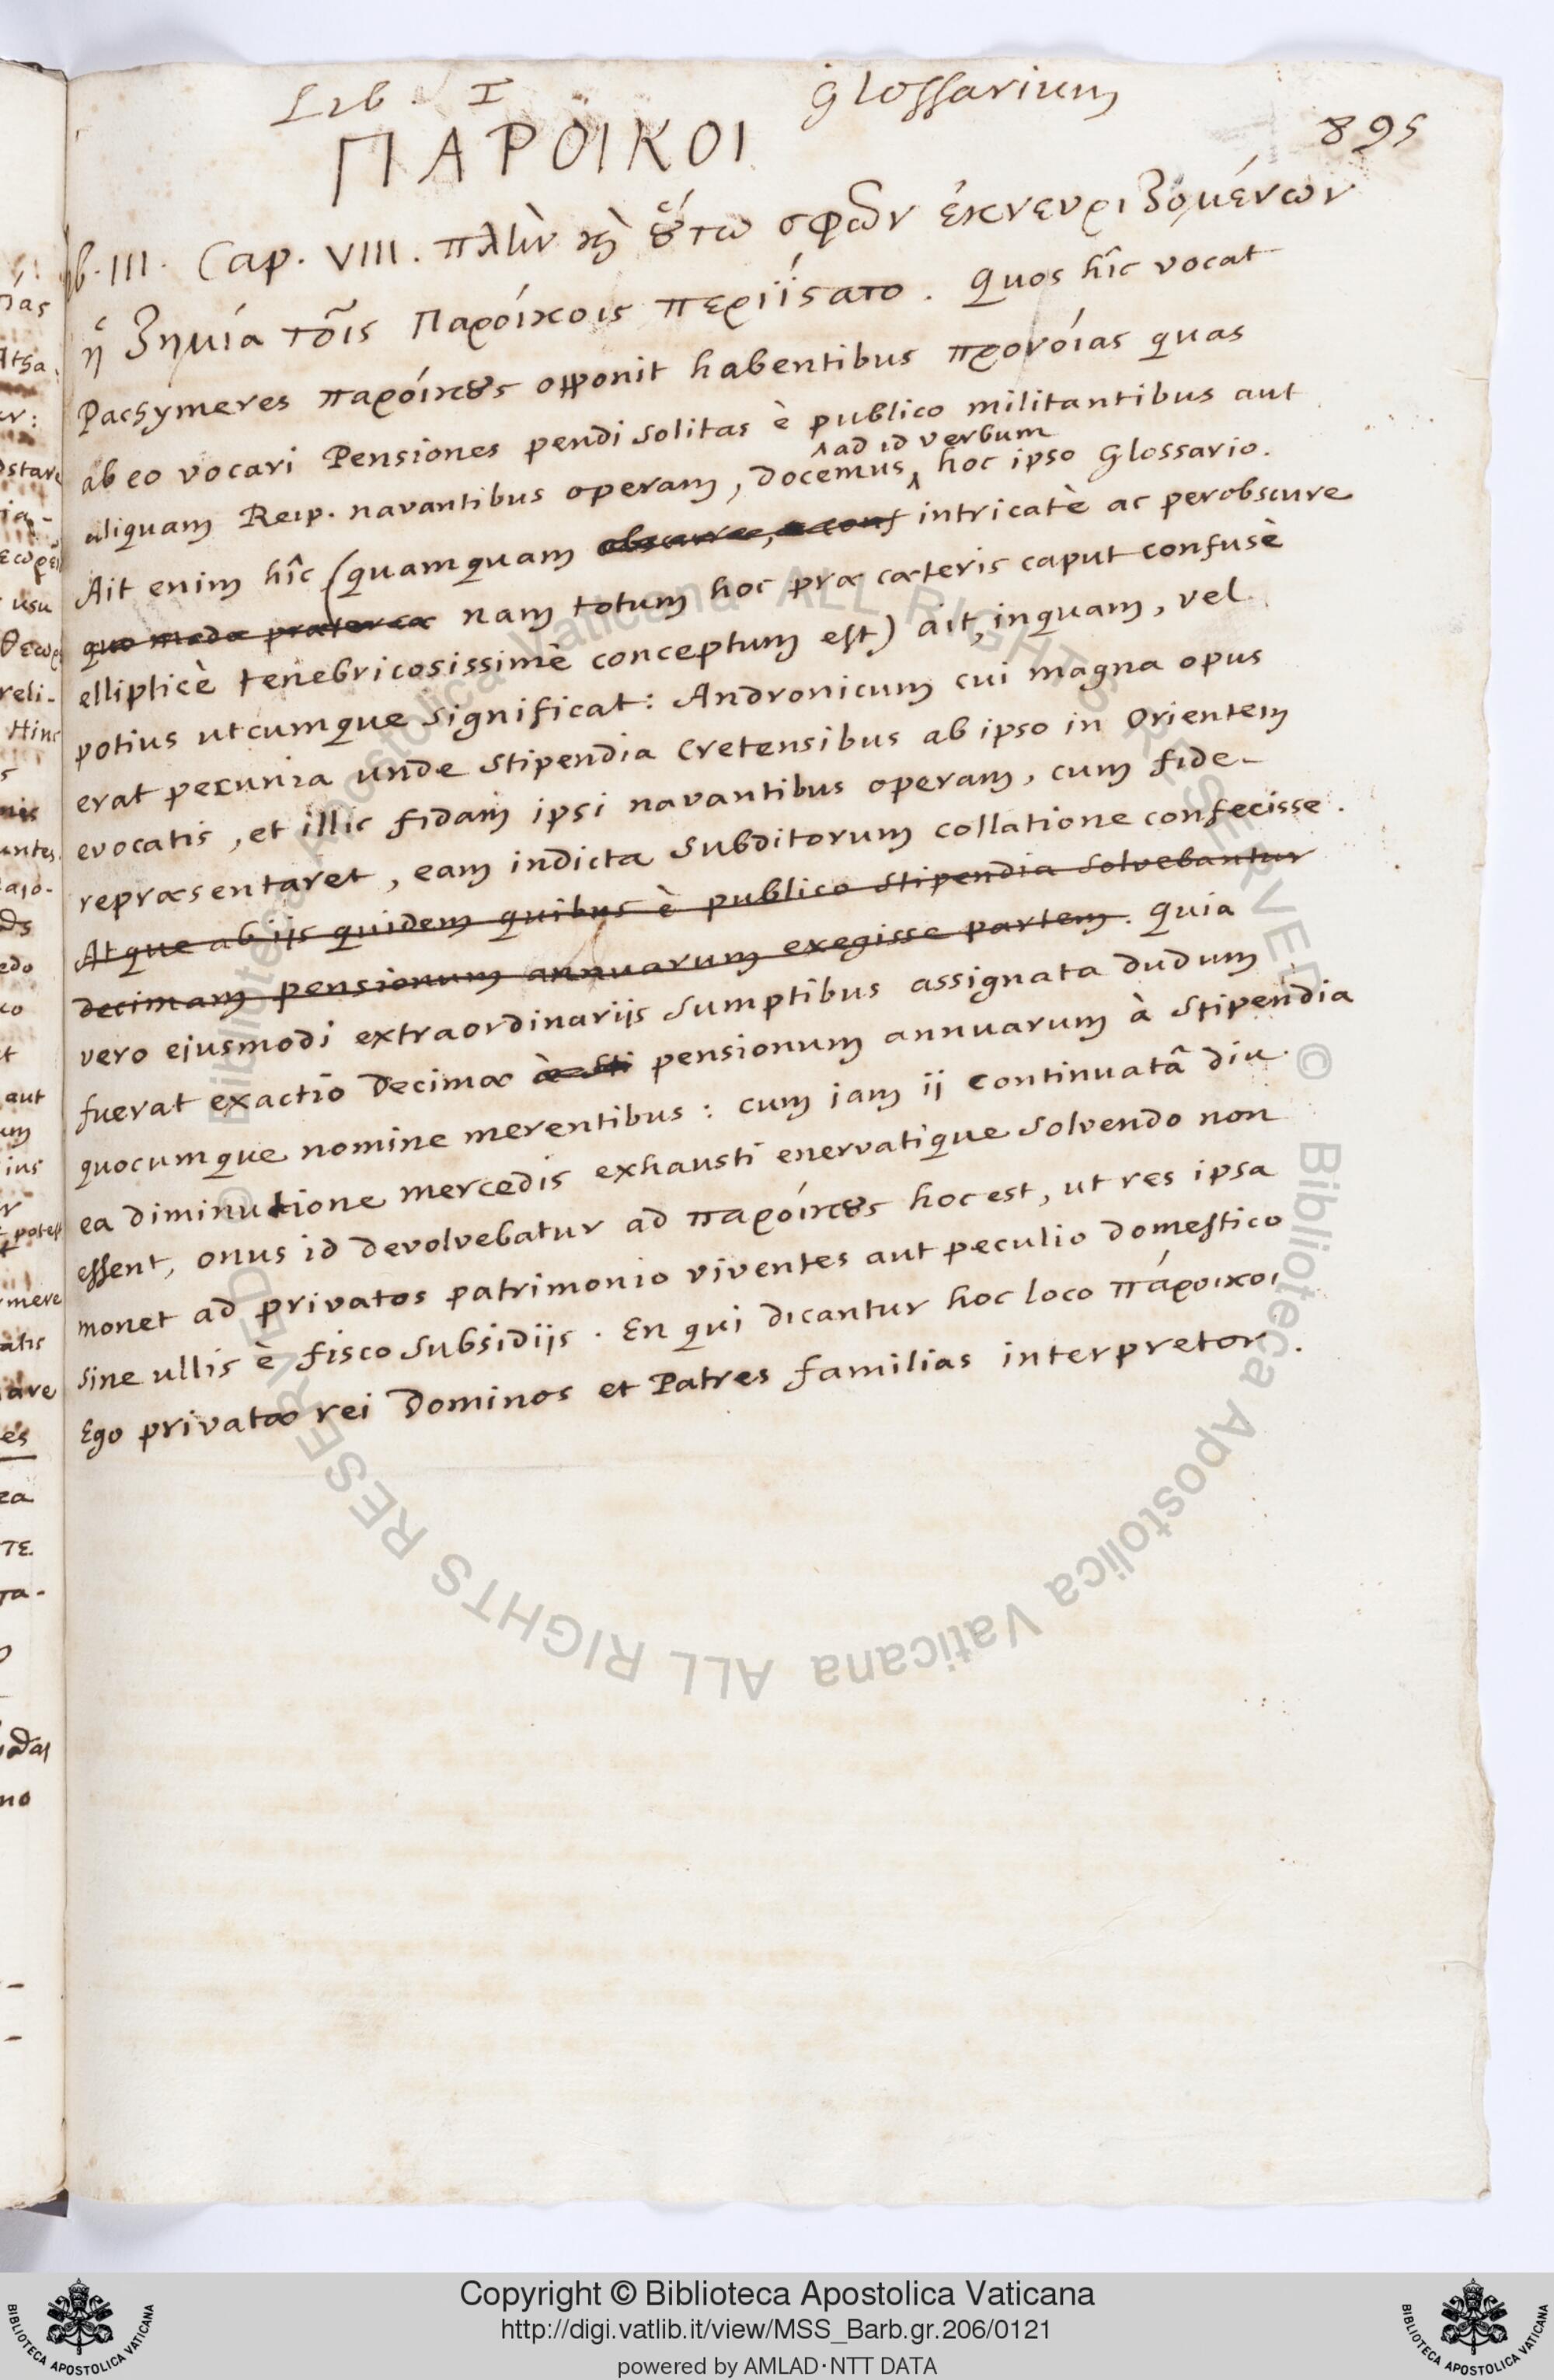 Lib. I Glossarium
895
ΠΑΡΟΙΚΟΙ
b. III. Cap. VIII. πλὴν καὶ οὕτω σφῶν ἐκνευριζομένων
ἡ ζημία τοῖς Παροίκοις περιΐστατο. Quos hîc vocat
Pachymeres παροίκους opponit habentibus προνοίας quas
ab eo vocari Pensiones pendi solitas è publico militantibus aut
aliquam Reip. navantibus operam, docemus ad id verbum hoc ipso Glossario.
Ait enim hîc (quamquam obscure, ac conf intricatè ac perobscure
quo modo praeterea nam totum hoc prae caeteris caput confusè
ellipticè tenebricosissimè conceptum est) ait, inquam, vel
potius utcumque significat: Andronicum cui magna opus
erat pecunia unde stipendia Cretensibus ab ipso in Orientem
evocatis, et illic fidam ipsi navantibus operam, cum fide-
repraesentaret, eam indicta subditorum collatione confecisse.
Atque ab ijs quidem quibus è publico stipendia solvebantur
decimam pensionum annuarum exegisse partem. Quia
vero ejusmodi extraordinarijs sumptibus assignata dudum
fuerat exactio Decimae à sti pensionum annuarum à stipendia
quocumque nomine merentibus: cum iam ij continuatâ diu
ea diminutione mercedis exhausti enervatique solvendo non
essent, onus id devolvebatur ad παροίκους hoc est, ut res ipsa
monet ad privatos patrimonio viventes aut peculio domestico
sine ullis è fisco subsidijs. En qui dicantur hoc loco πάροικοι
Ego privatae rei Dominos et Patres familias interpretor.
Copyright © Biblioteca Apostolica Vaticana
http://digi.vatlib.it/view/MSS_Barb.gr.206/0121
powered by AMLAD·NTT DATA